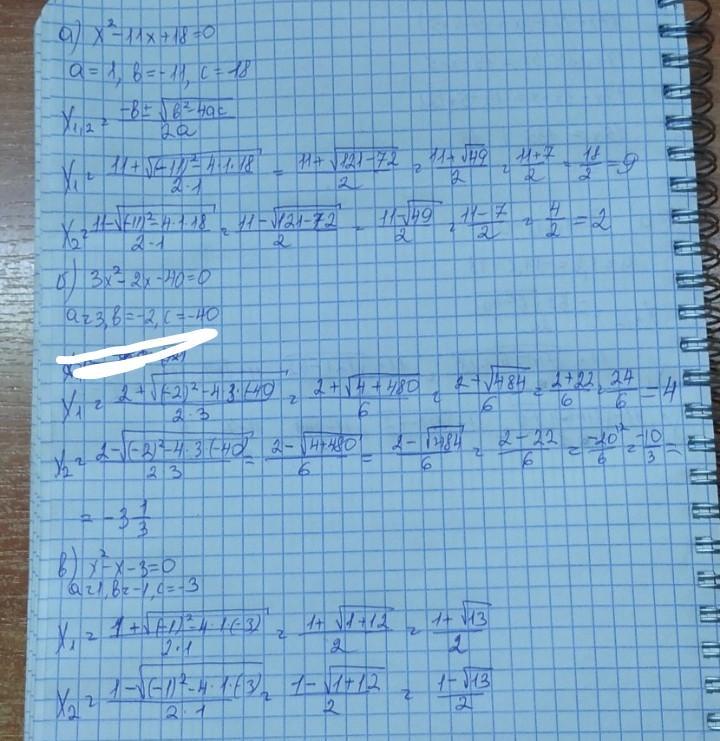 а) x²-11x+18=0
a=1, b=-11, c=18
x₁,₂ = (-b±√(b²-4ac))/2a
x₁ = (11+√((-11)²-4·1·18))/(2·1) = (11+√(121-72))/2 = (11+√49)/2 = (11+7)/2 = 18/2 = 9
x₂ = (11-√((-11)²-4·1·18))/(2·1) = (11-√(121-72))/2 = (11-√49)/2 = (11-7)/2 = 4/2 = 2
б) 3x²-2x-40=0
a=3, b=-2, c=-40
x₁ = (2+√((-2)²-4·3·(-40)))/(2·3) = (2+√(4+480))/6 = (2+√484)/6 = (2+22)/6 = 24/6 = 4
x₂ = (2-√((-2)²-4·3·(-40)))/(2·3) = (2-√(4+480))/6 = (2-√484)/6 = (2-22)/6 = -20/6 = -10/3 =
= -3 1/3
в) x²-x-3=0
a=1, b=-1, c=-3
x₁ = (1+√((-1)²-4·1·(-3)))/(2·1) = (1+√(1+12))/2 = (1+√13)/2
x₂ = (1-√((-1)²-4·1·(-3)))/(2·1) = (1-√(1+12))/2 = (1-√13)/2